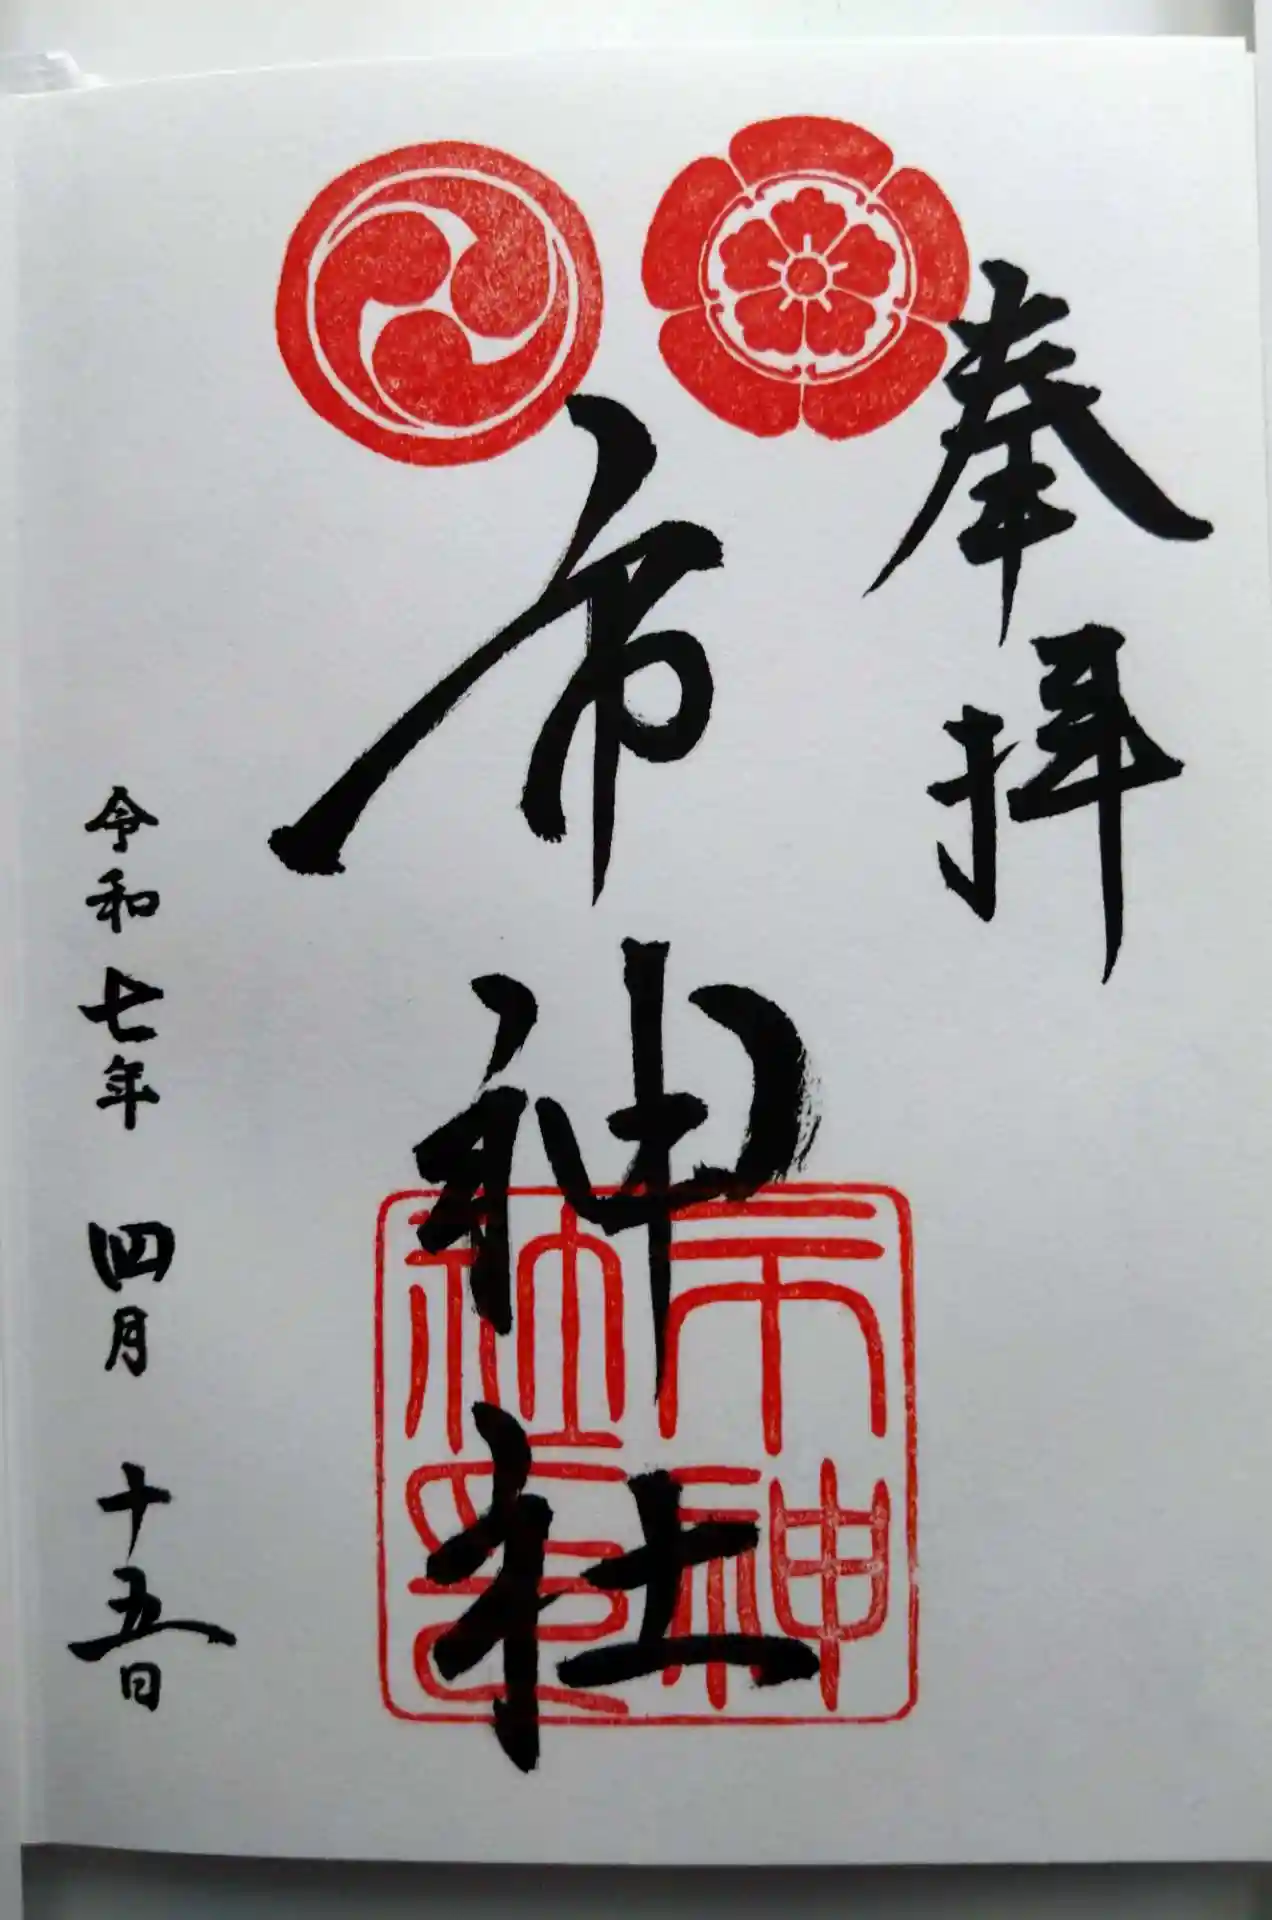 奉拝
市神社
市神
社印
令和七年 四月 十五日